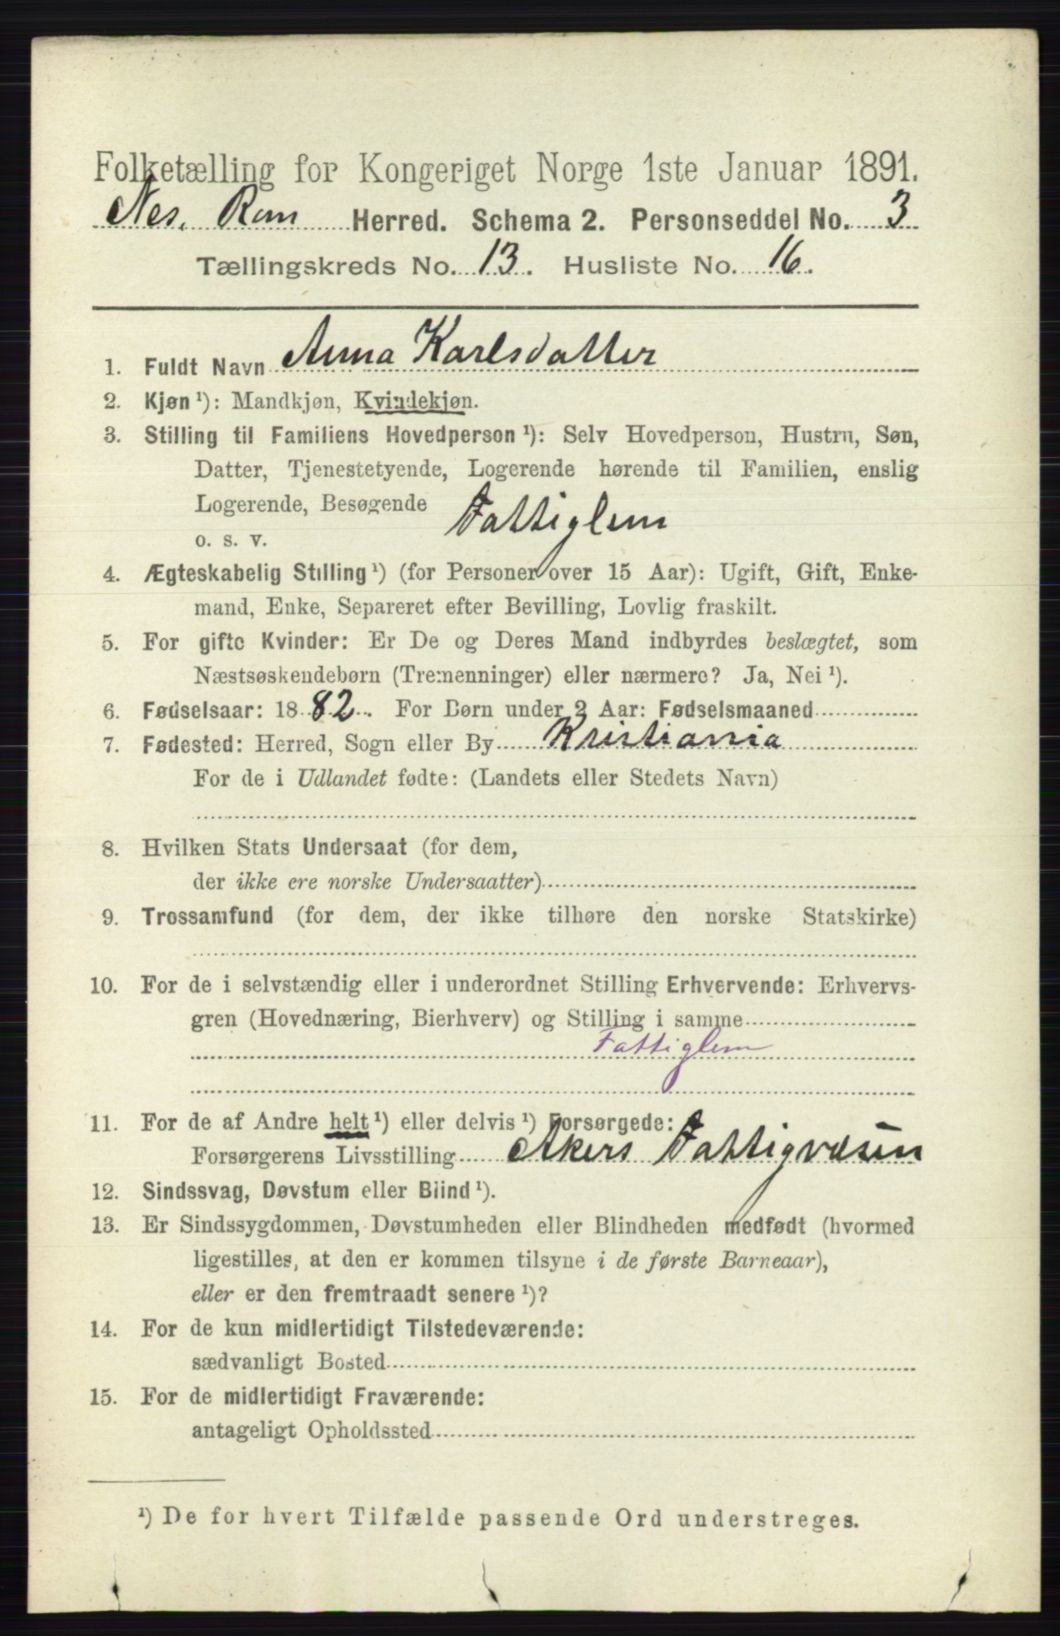 Folketælling for Kongeriget Norge 1ste Januar 1891.
Nes, Rom Herred. Schema 2. Personseddel No. 3
Tællingskreds No. 13. Husliste No. 16.
1. Fuldt Navn Anna Karlsdatter
2. Kjøn ¹): Mandkjøn, Kvindekjøn.
3. Stilling til Familiens Hovedperson ¹): Selv Hovedperson, Hustru, Søn,
Datter, Tjenestetyende, Logerende hørende til Familien, enslig
Logerende, Besøgende
o. s. v. Fattiglem
4. Ægteskabelig Stilling ¹) (for Personer over 15 Aar): Ugift, Gift, Enke-
mand, Enke, Separeret efter Bevilling, Lovlig fraskilt.
5. For gifte Kvinder: Er De og Deres Mand indbyrdes beslægtet, som
Næstsøskendebørn (Tremenninger) eller nærmere? Ja, Nei ¹).
6. Fødselsaar: 1882. For Børn under 2 Aar: Fødselsmaaned
7. Fødested: Herred, Sogn eller By Kristiania
For de i Udlandet fødte: (Landets eller Stedets Navn)
8. Hvilken Stats Undersaat (for dem,
der ikke ere norske Undersaatter)
9. Trossamfund (for dem, der ikke tilhøre den norske Statskirke)
10. For de i selvstændig eller i underordnet Stilling Erhvervende: Erhvervs-
gren (Hovednæring, Bierhverv) og Stilling i samme
Fattiglem
11. For de af Andre helt ¹) eller delvis ¹) Forsørgede:
Forsørgerens Livsstilling Akers Fattigvæsen
12. Sindssvag, Døvstum eller Blind ¹).
13. Er Sindssygdommen, Døvstumheden eller Blindheden medfødt (hvormed
ligestilles, at den er kommen tilsyne i de første Barneaar),
eller er den fremtraadt senere ¹)?
14. For de kun midlertidigt Tilstedeværende:
sædvanligt Bosted
15. For de midlertidigt Fraværende:
antageligt Opholdssted
¹) De for hvert Tilfælde passende Ord understreges.